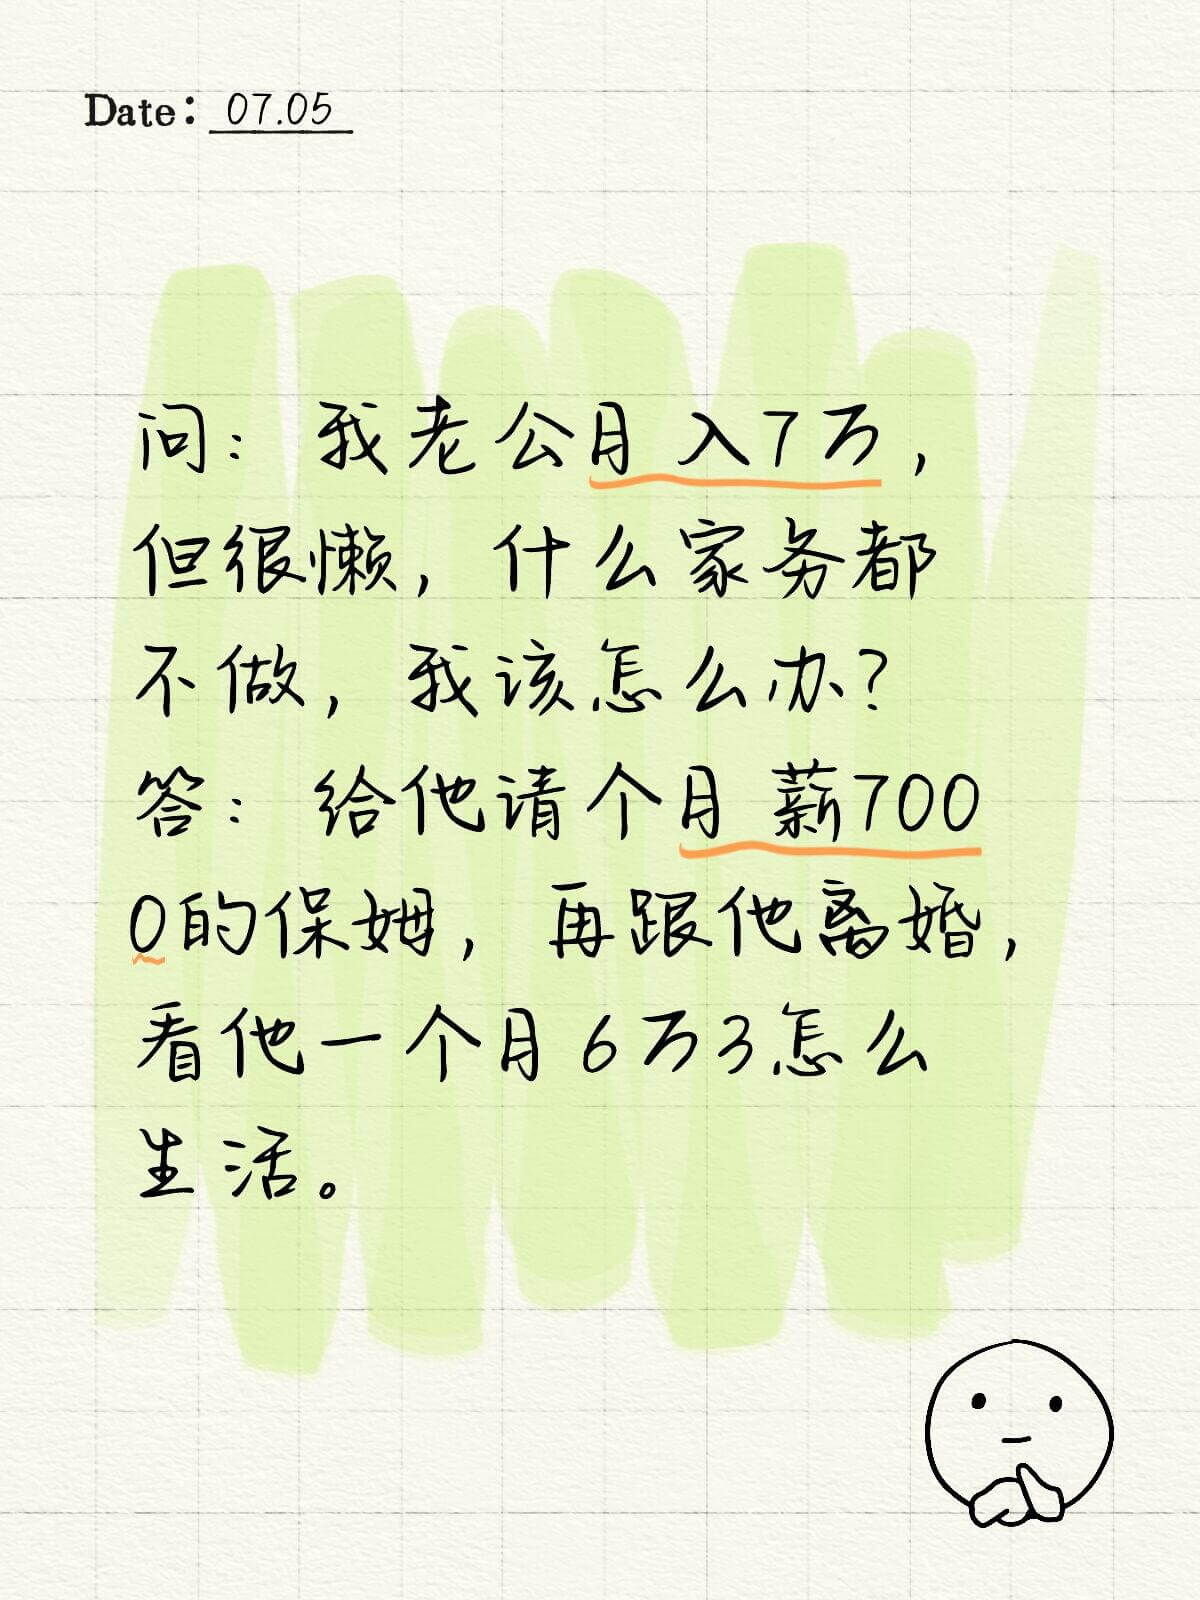 Date: 07.05
问：我老公月入7万，
但很懒，什么家务都
不做，我该怎么办？
答：给他请个月薪700
0的保姆，再跟他离婚，
看他一个月6万3怎么
生活。